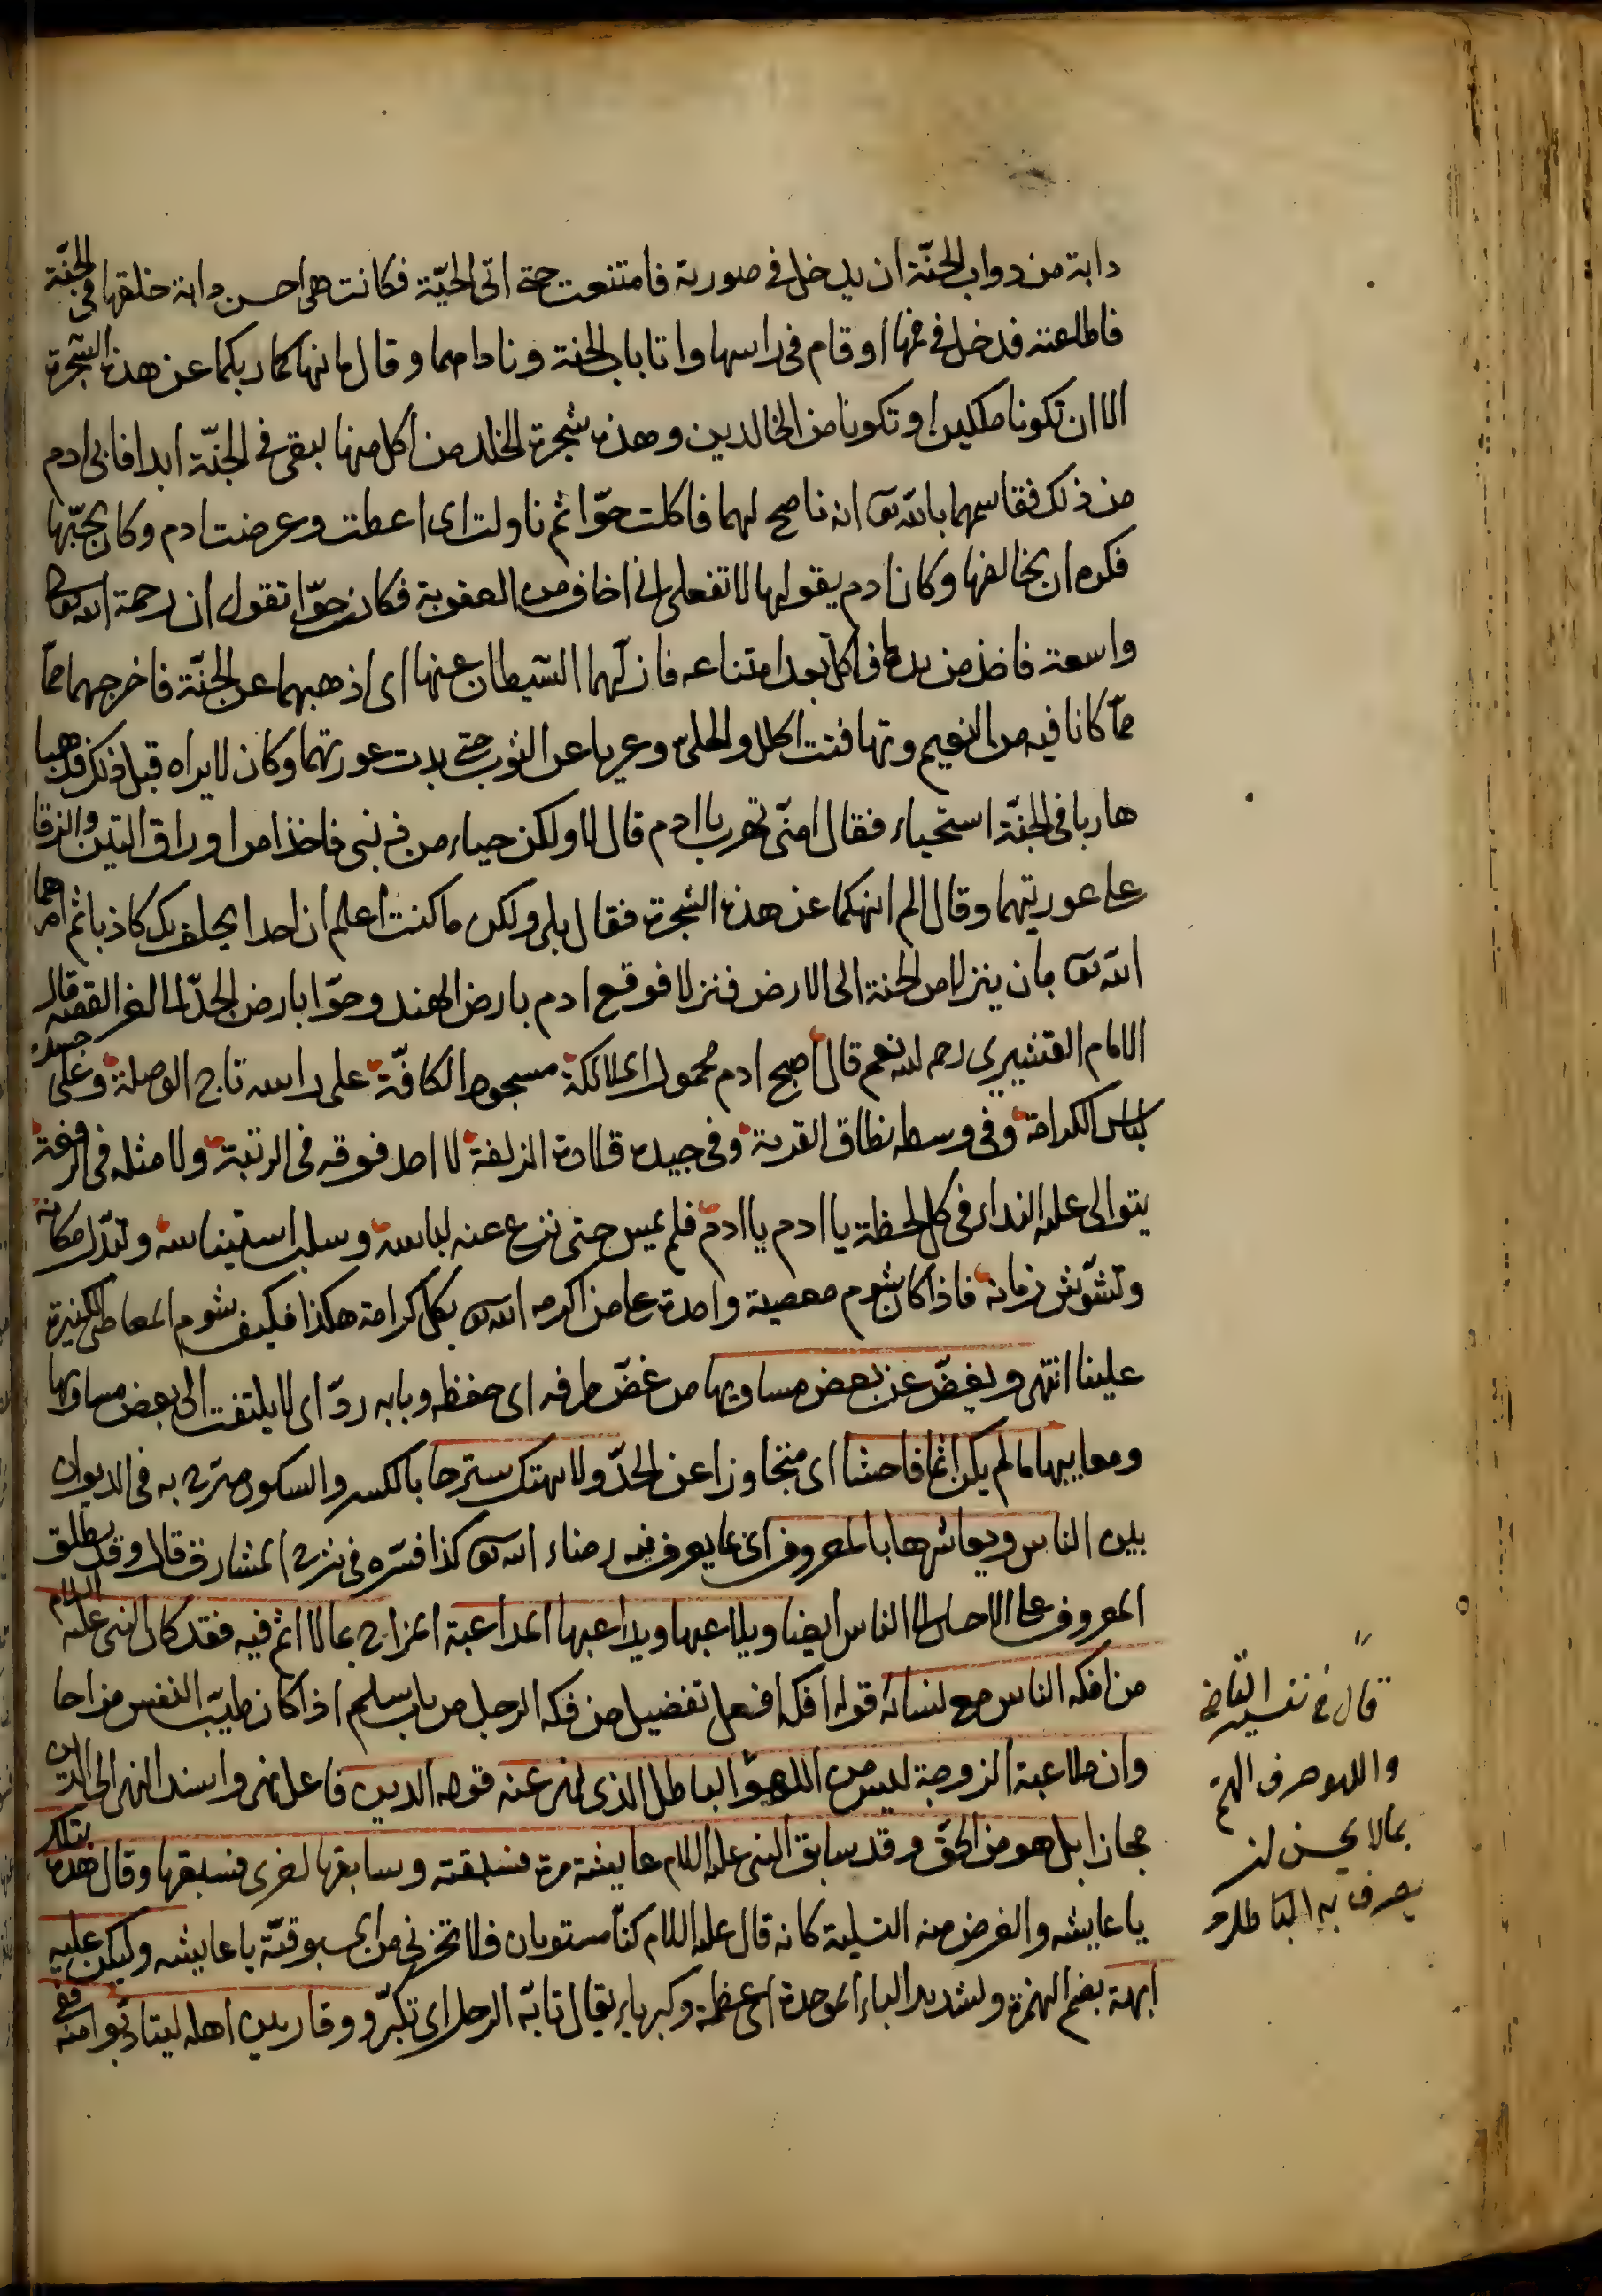 دابة من دواب الجنّة ان يدخل في صورته فامتنعت حتى اتى الحيّة فكانت هى احسن دابة خلقها في الجنّة
فاطلعته فدخل في فمها او قام في راسها واتا باب الجنة وناداهما وقال ما نهاكما ربكما عن هذه الشجرة
الا ان تكونا ملكين او تكونا من الخالدين وهذه شجرة الخلد من اكل منها يبقى في الجنّة ابدا فابى ادم
من ذلك فقاسمهما بالله تع انه ناصح لهما فاكلت حوّا ثم ناولت اى اعطت وعرضت ادم وكان يحبّها
فكره ان يخالفها وكان ادم يقول لها لا تفعلى انى اخاف من العقوبة فكان حوّا تقول ان رحمة الله تعالى
واسعة فاخذ من يدها فاكل بعد امتناعه فازلّهما الشيطان عنها اى اذهبهما عن الجنّة فاخرجهما ممّا
ممّا كانا فيه من النعيم وتهافتت الحلل والحلىّ وعريا عن الثوب حتى بدت عورتهما وكان لا يراه قبل ذلك فذهبا
هاربا في الجنّة استحياء فقال امنّى تهرب يا ادم قال لا ولكن حياء من ذنبى فاخذا من اوراق التين والزقا
على عورتيهما وقال الم انهكما عن هذه الشجرة فقال بلى ولكن ما كنت اعلم ان احدا يحلف بك كاذبا ثم امرهما
الله تع بان ينزلا من الجنة الى الارض فنزلا فوقع ادم بارض الهند وحوّا بارض الجدّا الى اخر القصة قال
الامام القشيرى رحمه الله نعم قال اصبح ادم محمول الملائكة مسجود الكافّة على راسه تاج الوصلة وعلى جسده
لباس الكرامة وفى وسطه نطاق القربة وفى جيده قلادة الزلفة لا احد فوقه فى الرتبة ولا مثله فى الرفعة
يتوالى عليه النداء فى كل لحظة يا ادم يا ادم فلم يمس حتى نزع عنه لباسه وسلب استيناسه وتبدّل مكانه
وتشوّش زمانه فاذا كان شوم معصية واحدة على من اكرمه الله تع بكل كرامة هكذا فكيف شوم المعاصى الكثيرة
علينا انتهى ويغضّ عن بعض مساويها من غضّ طرفه اى حفظه وبابه ردّ اى لا يلتفت الى بعض مساويها
ومعايبها ما لم يكن اثما فاحشا اى متجاوزا عن الحدّ ولا يهتك سترها بالكسر والسكون صرّح به فى الديوان
بين الناس ويعاشرها بالمعروف اى بما يعرف فيه رضاء الله تع كذا فسّره فى شرح المشارق قال وقد يطلق
المعروف على الاحسان الى الناس ايضا ويلاعبها ويداعبها المداعبة المزاح بما لا اثم فيه فقد كان النبى عليه السلام
من افكه الناس مع نسائه قوله افكه افعل تفضيل من فكه الرجل من باب سلم اذا كان طيّب النفس مزاحا
وان ملاعبة الزوجة ليس من اللهو الباطل الذى نهى عنه قوله الدين فاعل نهى واسند النهى الى الدين
مجازا بل هو من الحقّ وقد سابق النبى عليه السلام عايشة مرة فسبقته وسابقها اخرى فسبقها وقال هذه بتلك
يا عايشه والغرض منه التسلية كانه قال عليه السلام كنّا مستويان فلا تحزنى من المسبوقيّة يا عايشه وليكن عليه
ابهة بضم الهمزة وتشديد الباء الموحدة اى عظمة وكبرياء يقال تابّه الرجل اى تكبّر ووقار بين اهله ليتادّبوا منه ففى
قال فى تفسير القاضى
واللهو صرف الهم
بما لا يحسن ان
يصرف به